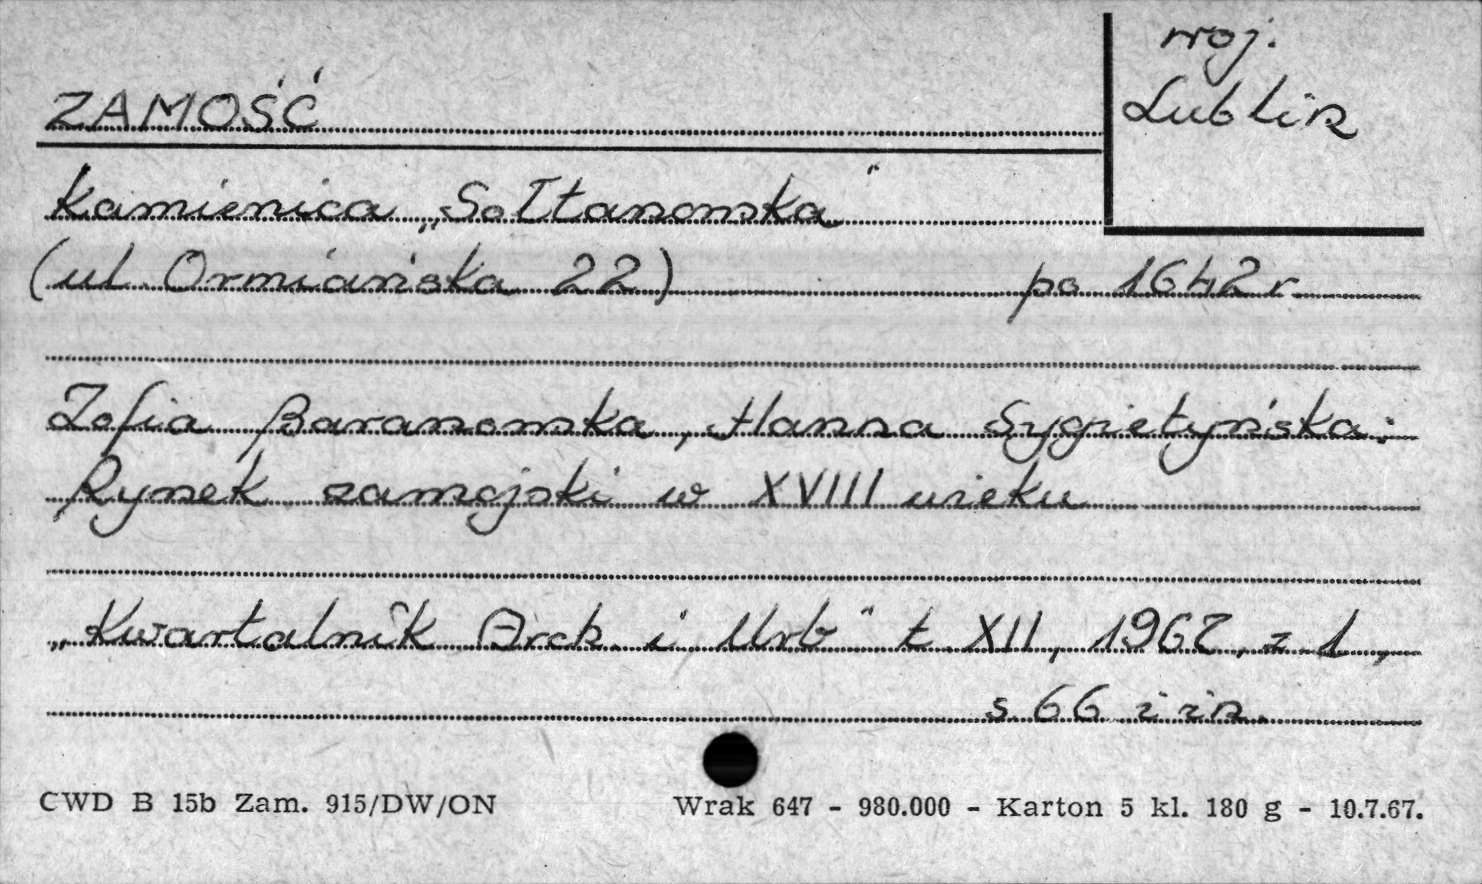 woj.
Lublin
ZAMOŚĆ
Kamienica „Sołtanowska"
(ul. Ormiańska 22) po 1642 r.
Zofia Baranowska, Hanna Sygietyńska:
Rynek zamojski w XVIII wieku
„Kwartalnik Arch. i Urb" t. XII, 1967, z 1,
s. 66 i in.
CWD B 15b Zam. 915/DW/ON Wrak 647 - 980.000 - Karton 5 kl. 180 g - 10.7.67.